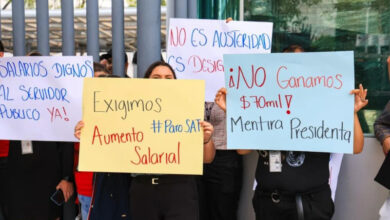 NO ES AUSTERIDAD
ES DESIG
SALARIOS DIGNOS
AL SERVIDOR
PÚBLICO YA!
Exigimos
#Paro SAT
Aumento
Salarial
¡NO Ganamos
$70mil!
Mentira Presidenta